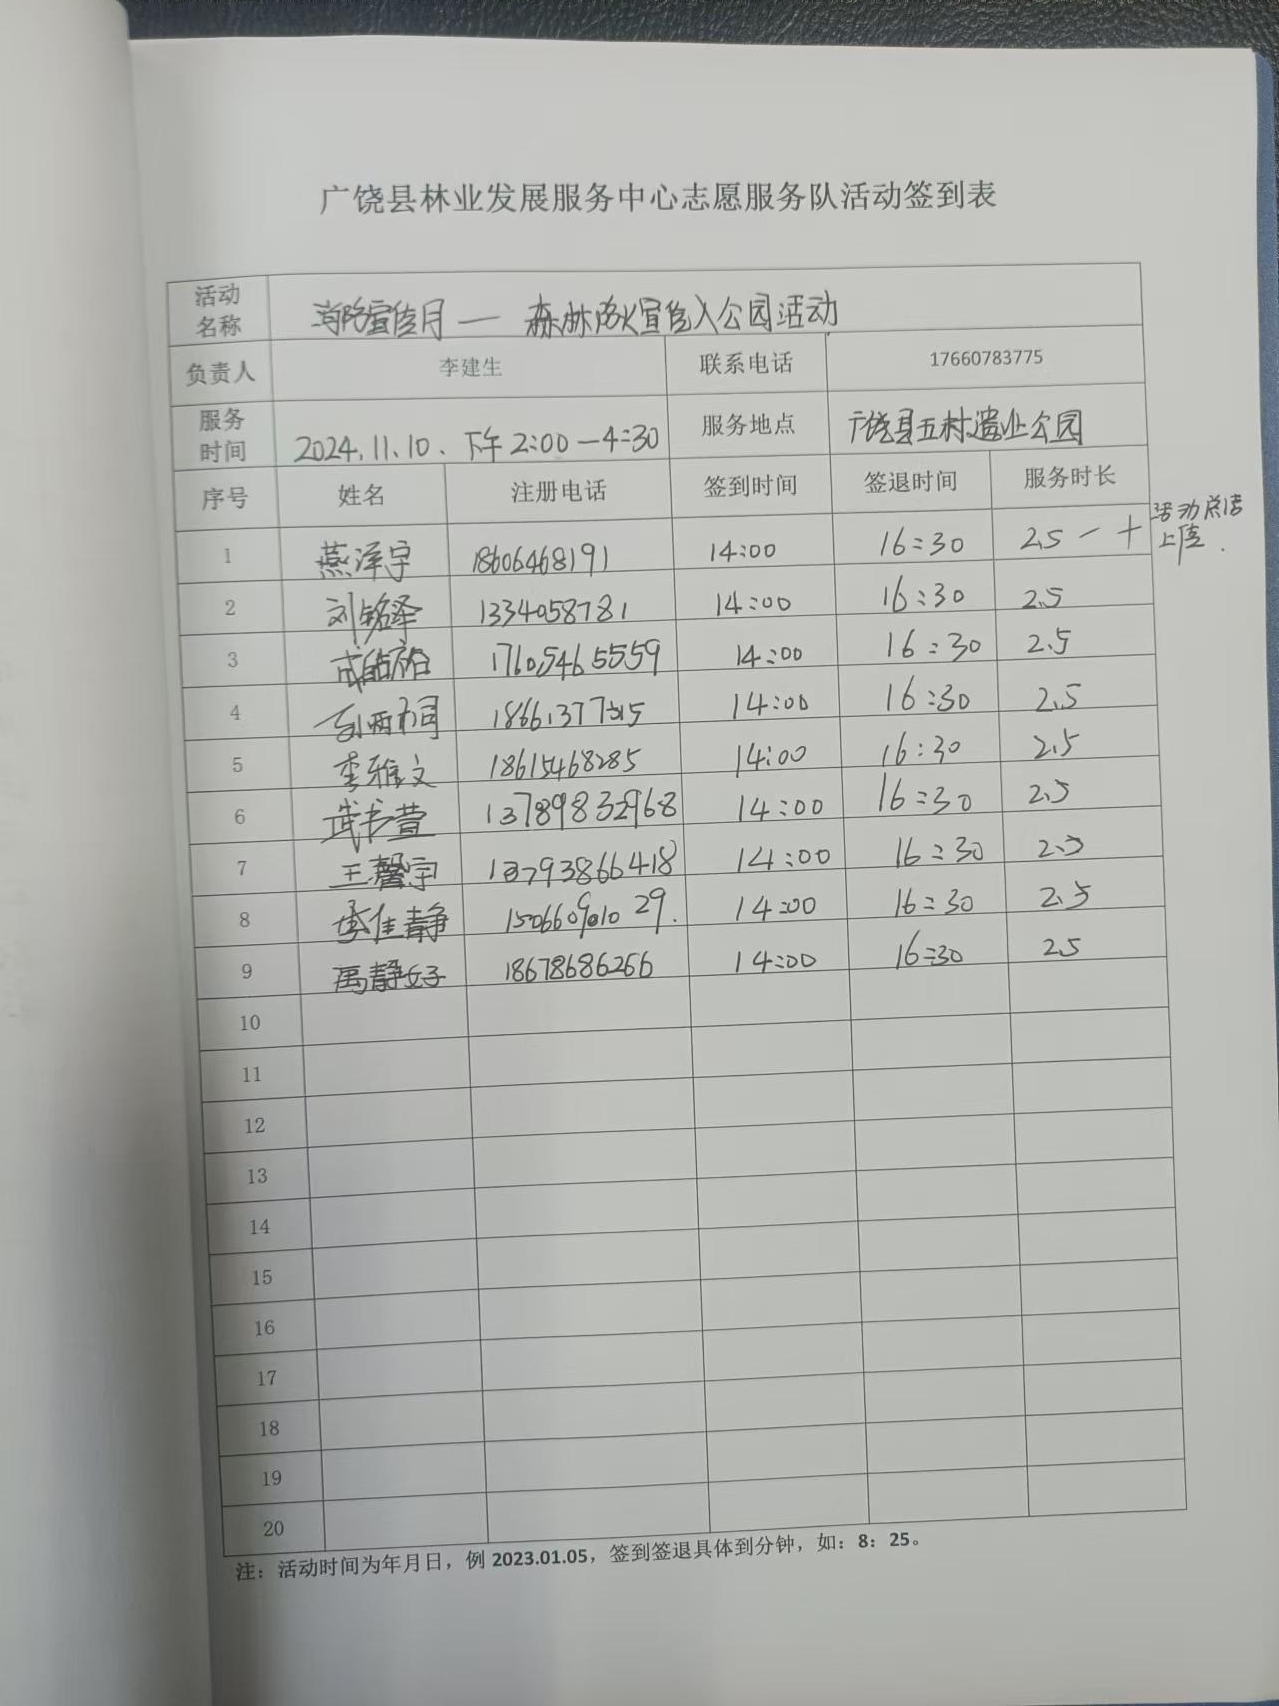 广饶县林业发展服务中心志愿服务队活动签到表
活动名称 消防宣传月— 森林防火宣传入公园活动
负责人 李建生 联系电话 17660783775
服务时间 2024.11.10、下午2:00—4:30 服务地点 广饶县五村遗址公园
序号 姓名 注册电话 签到时间 签退时间 服务时长
1 燕泽宇 18606468191 14:00 16:30 2.5 — 十 活动总结上传.
2 刘铭泽 1334058781 14:00 16:30 2.5
3 17605465559 14:00 16:30 2.5
4 14:00 16:30 2.5
5 李雅文 18615468285 14:00 16:30 2.5
6 武书萱 13789832968 14:00 16:30 2.5
7 王馨宇 13793866418 14:00 16:30 2.5
8 李佳静 14:00 16:30 2.5
9 禹静好 18678686266 14:00 16:30 2.5
10
11
12
13
14
15
16
17
18
19
20
注：活动时间为年月日，例 2023.01.05，签到签退具体到分钟，如：8：25。